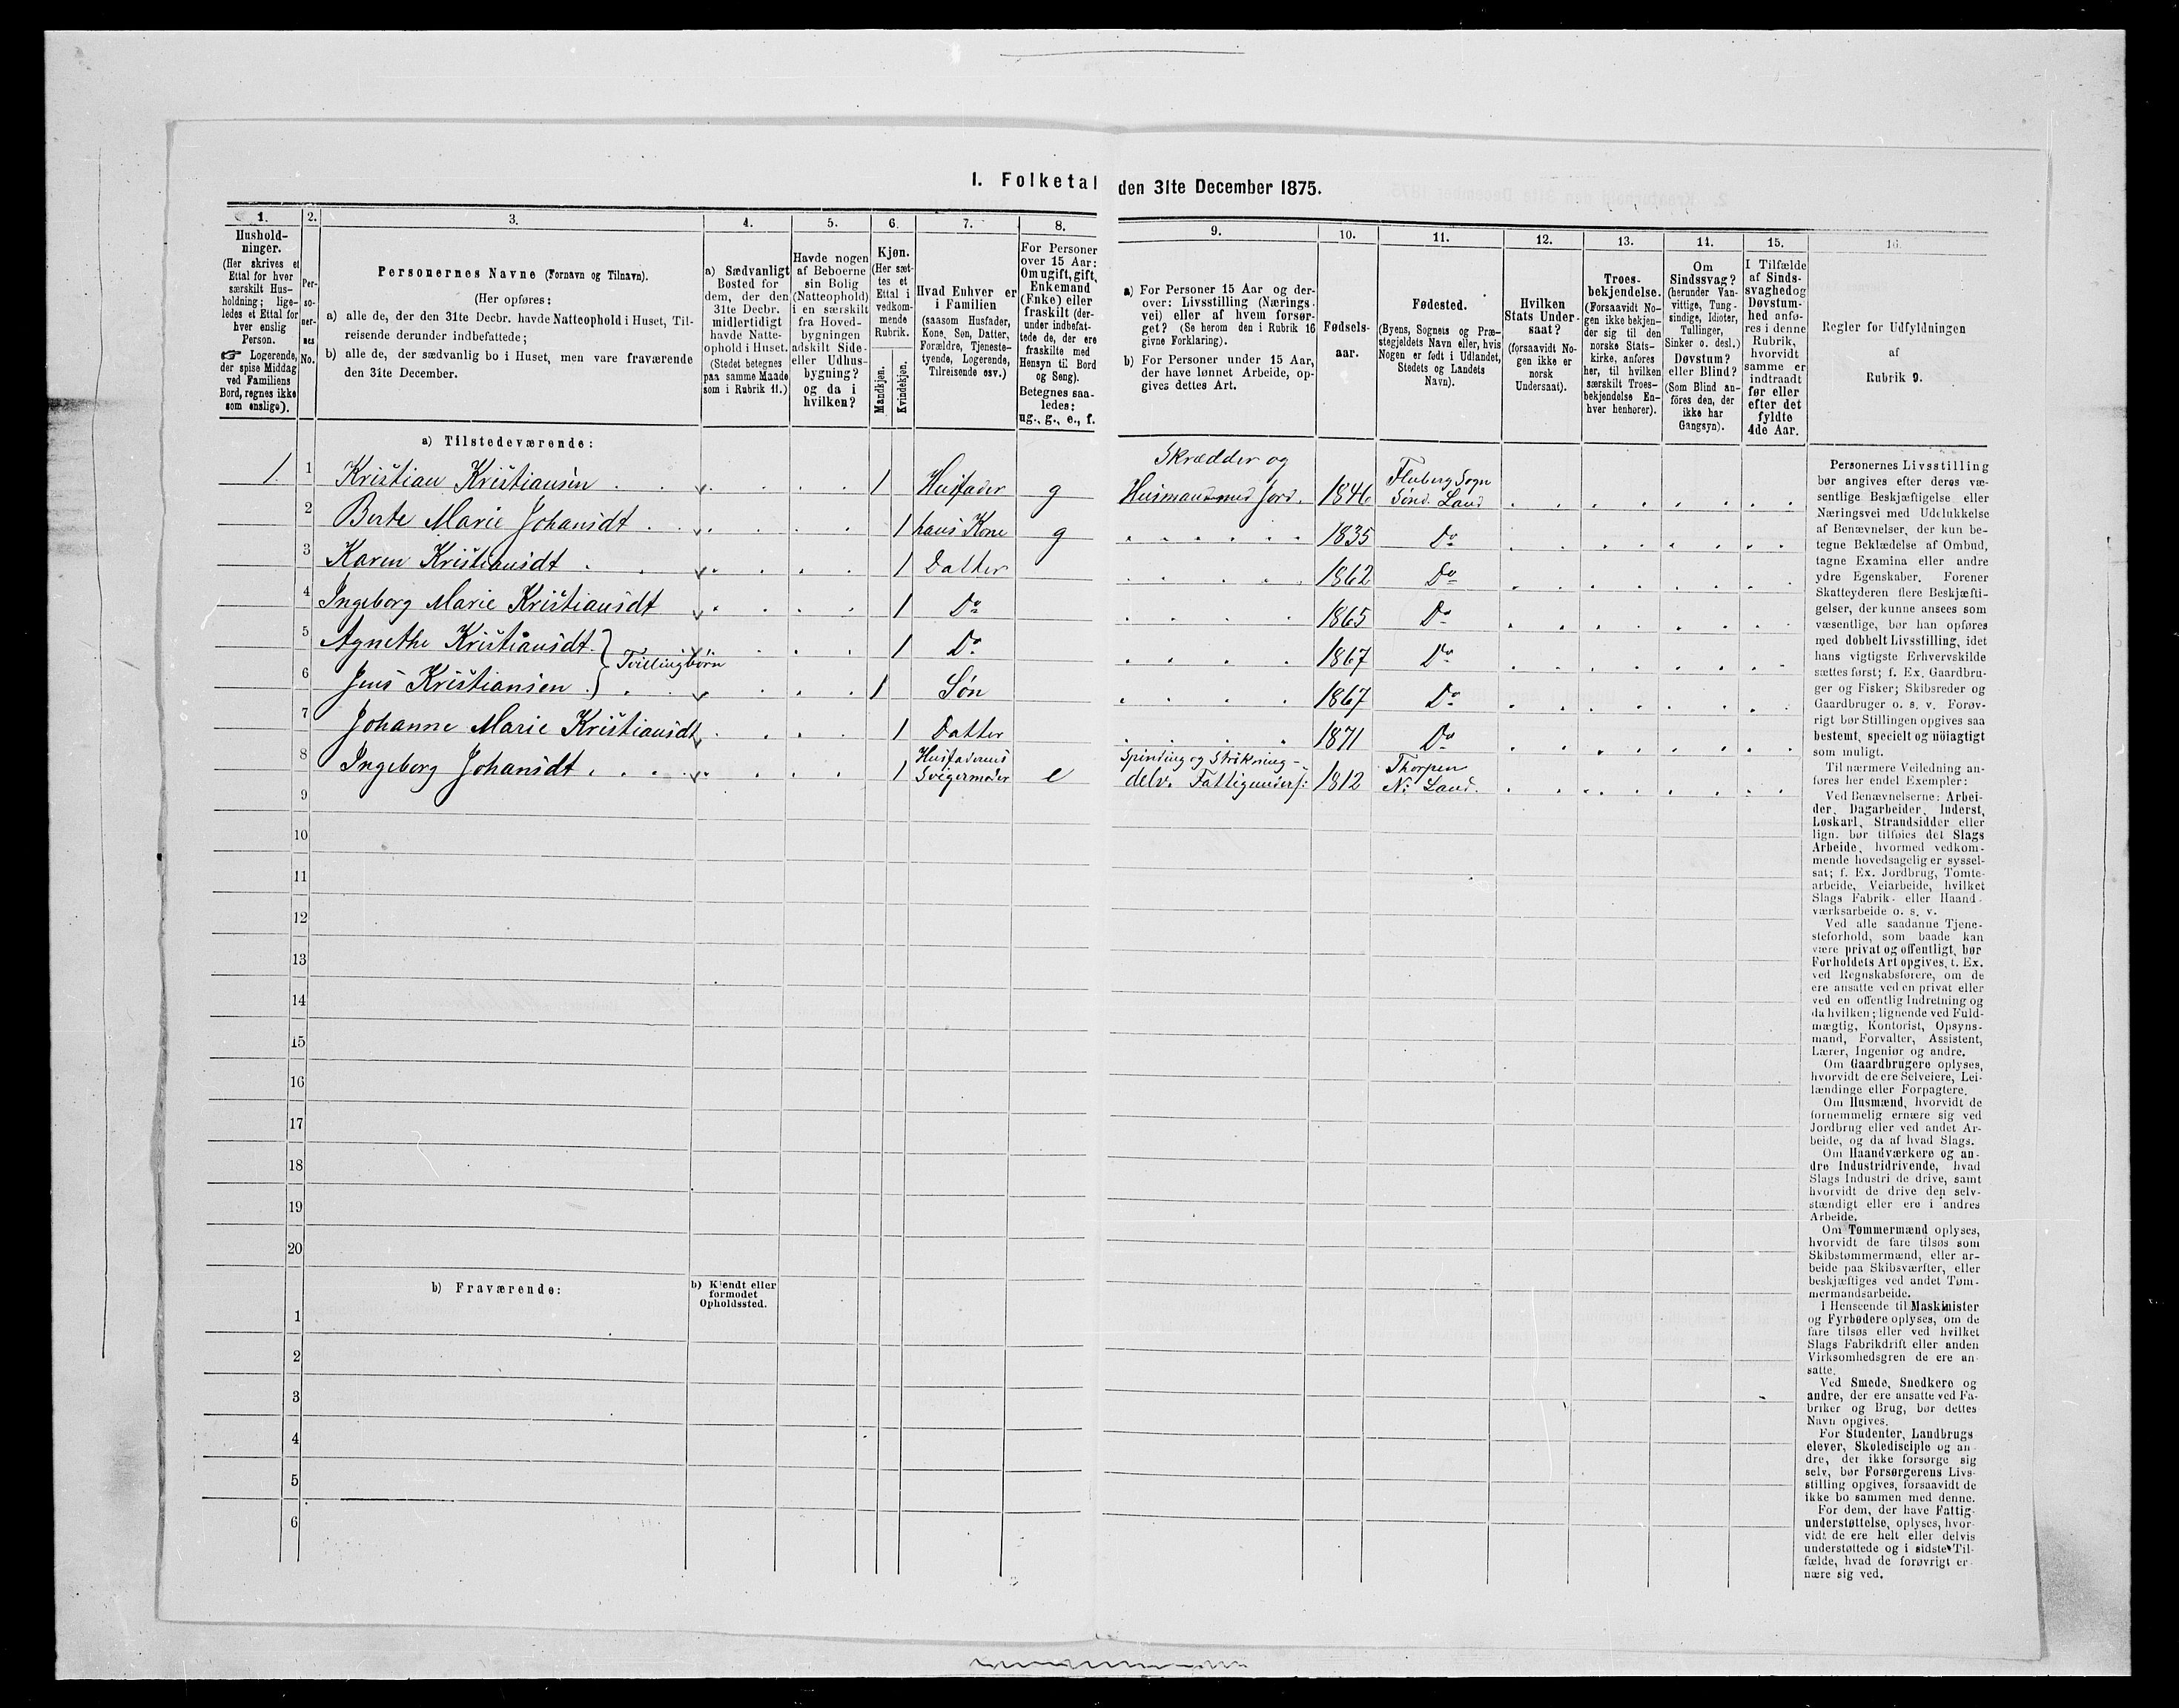 I. Folketal den 31te December 1875.
1.
Hushold-
ninger.
(Her skrives et
Ettal for hver
særskilt Hus-
holdning; lige-
ledes et Ettal for
hver enslig
Person.
☞ Logerende,
der spise Middag
ved Familiens
Bord, regnes ikke
som enslige).
2.
Per-
so-
ner-
nes
No.
3.
Personernes Navne (Fornavn og Tilnavn).
(Her opføres:
a) alle de, der den 31te Decbr. havde Natteophold i Huset, Til-
reisende derunder indbefattede;
b) alle de, der sædvanlig bo i Huset, men vare fraværende
den 31te December.
4.
a) Sædvanligt
Bosted for
dem, der den
31te Decbr.
midlertidigt
havde Natte-
ophold i Huset.
(Stedet betegnes
paa samme Maade
som i Rubrik 11.)
5.
Havde nogen
af Beboerne
sin Bolig
(Natteophold)
i en særskilt
fra Hoved-
bygningen
adskilt Side-
eller Udhus-
bygning?
og da i
hvilken?
6.
Kjøn.
(Her sæt-
tes et
Ettal i
vedkom-
mende
Rubrik.
Mandkjøn.
Kvindekjøn.
7.
Hvad Enhver er
i Familien
(saasom Husfader,
Kone, Søn, Datter,
Forældre, Tjeneste-
tyende, Logerende,
Tilreisende osv.)
8.
For Personer
over 15 Aar:
Om ugift, gift,
Enkemand
(Enke) eller
fraskilt (der-
under indbefat-
tede de, der ere
fraskilte med
Hensyn til Bord
og Seng).
Betegnes saa-
ledes:
ug., g., e., f.
9.
a) For Personer 15 Aar og der-
over: Livsstilling (Nærings-
vei) eller af hvem forsør-
get? (Se herom den i Rubrik 16
givne Forklaring).
b) For Personer under 15 Aar,
der have lønnet Arbeide, op-
gives dettes Art.
10.
Fødsels-
aar.
11.
Fødested.
(Byens, Sognets og Præ-
stegjeldets Navn eller, hvis
Nogen er født i Udlandet,
Stedets og Landets
Navn).
12.
Hvilken
Stats Under-
saat?
(forsaavidt No-
gen ikke er
norsk
Undersaat).
13.
Troes-
bekjendelse.
(Forsaavidt No-
gen ikke bekjen-
der sig til den
norske Stats-
kirke, anføres
her, til hvilken
særskilt Troes-
bekjendelse En-
hver henhører).
14.
Om
Sindssvag?
(herunder Van-
vittige, Tung-
sindige, Idioter,
Tullinger,
Sinker o. desl.)
Døvstum?
eller Blind?
(Som Blind an-
føres den, der
ikke har
Gangsyn).
15.
I Tilfælde
af Sinds-
svaghed og
Døvstum-
hed anfø-
res i denne
Rubrik,
hvorvidt
samme er
indtraadt
før eller
efter det
fyldte
4de Aar.
16.
Regler for Udfyldningen
af
Rubrik 9.
a) Tilstedeværende:
1. 1 Kristian Kristiansen 1 Husfader g Skrædder og Husmand med Jord. 1846 Fluberg Sogn Sønd. Land
2 Berte Marie Johansdt 1 hans Kone g 1835 Do
3 Karen Kristiansdt 1 Datter 1862 Do
4 Ingeborg Marie Kristiansdt 1 Do 1865 Do
5 Agnethe Kristiansdt. } Tvillingbørn 1 Do 1867 Do
6 Jens Kristiansen 1 Søn 1867 Do
7 Johanne Marie Kristiansdt 1 Datter 1871 Do
8 Ingeborg Johansdt 1 Husfaderens Svigermoder e Spinding og Strikning - delv. Fattigunders: 1812 Thorpen N: Land.
9
10
11
12
13
14
15
16
17
18
19
20
b) Fraværende:
b) Kjendt eller
formodet
Opholdssted.
1
2
3
4
5
6
Personernes Livsstilling
bør angives efter deres væ-
sentlige Beskjæftigelse eller
Næringsvei med Udelukkelse
af Benævnelser, der kun be-
tegne Beklædelse af Ombud,
tagne Examina eller andre
ydre Egenskaber. Forener
Skatteyderen flere Beskjæfti-
gelser, der kunne ansees som
væsentlige, bør han opføres
med dobbelt Livsstilling, idet
hans vigtigste Erhvervskilde
sættes først; f. Ex. Gaardbru-
ger og Fisker; Skibsreder og
Gaardbruger o. s. v. Forøv-
rigt bør Stillingen opgives saa
bestemt, specielt og nöiagtigt
som muligt.
Til nærmere Veiledning an-
føres her endel Exempler:
Ved Benævnelserne: Arbei-
der, Dagarbeider, Inderst,
Løskarl, Strandsidder eller
lign. bør tilføies det Slags
Arbeide, hvormed vedkom-
mende hovedsagelig er syssel-
sat; f. Ex. Jordbrug, Tomte-
arbeide, Veiarbeide, hvilket
Slags Fabrik- eller Haand-
værksarbeide o. s. v.
Ved alle saadanne Tjene-
steforhold, som baade kan
være privat og offentligt, bør
Forholdets Art opgives, t. Ex.
ved Regnskabsførere, om de
ere ansatte ved en privat eller
ved en offentlig Indretning og
da hvilken; lignende ved Fuld-
mægtig, Kontorist, Opsyns-
mand, Forvalter, Assistent,
Lærer, Ingeniør og andre.
Om Gaardbrugere oplyses,
hvorvidt de ere Selveiere, Lei-
lændinge eller Forpagtere.
Om Husmænd, hvorvidt de
fornemmelig ernære sig ved
Jordbrug eller ved andet Ar-
beide, og da af hvad Slags.
Om Haandværkere og an-
dre Industridrivende, hvad
Slags Industri de drive, samt
hvorvidt de drive den selv-
stændigt eller ere i andres
Arbeide.
Om Tømmermænd oplyses,
hvorvidt de fare tilsøs som
Skibstømmermænd, eller ar-
beide paa Skibsværfter, eller
beskjæftiges ved andet Tøm-
mermandsarbeide.
I Henseende til Maskinister
og Fyrbødere oplyses, om de
fare tilsøs eller ved hvilket
Slags Fabrikdrift eller anden
Virksomhedsgren de ere an-
satte.
Ved Smede, Snedkere og
andre, der ere ansatte ved Fa-
briker og Brug, bør dettes
Navn opgives.
For Studenter, Landbrugs
elever, Skoledisciple og an-
dre, der ikke forsørge sig
selv, bør Forsørgerens Livs-
stilling opgives, forsaavidt de
ikke bo sammen med denne.
For dem, der have Fattig-
understøttelse, oplyses, hvor-
vidt de ere helt eller delvis
understøttede og i sidste Til-
fælde, hvad de forøvrigt er-
nære sig ved.